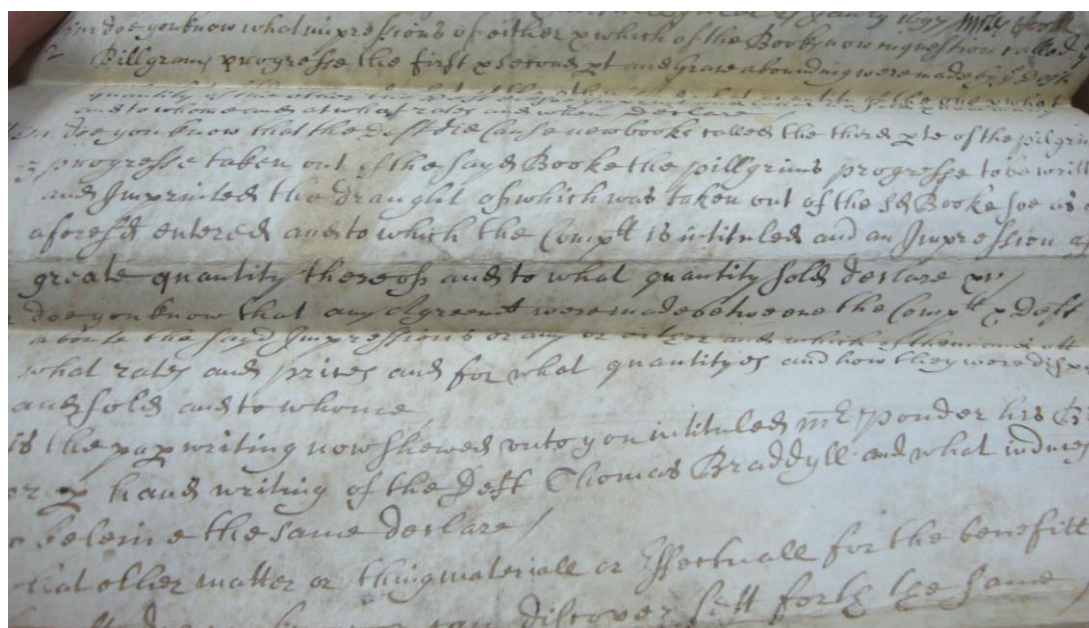 doe you know what impressions of either & which of the Books now in question called
Pillgrams progresse the first & second pt and Grace abounding were made by
and to whome and at what rates and when declare
doe you know that the deft did cause new booke called the third pte of the pilgrims
progresse taken out of the sayd Booke the pillgrims progresse to be writt
and Imprinted the draught of which was taken out of the sd Booke soe as
aforesd entered and to which the Complt is intituled and an Impression
greate quantity thereof and to what quantity sold declare
doe you know that any Agreemt were made betweene the Complt & deft
aboute the sayd Impressions or any or either and which of them and att
what rates and prices and for what quantityes and how they were
and sold and to whome
is the pap writing now shewed unto you intituled mr Ponder his
hand writing of the Deft Thomas Braddyll and what induces
beleive the same declare /
what other matter or thing materiall or Effectuall for the benefitt
can discover sett forth the same